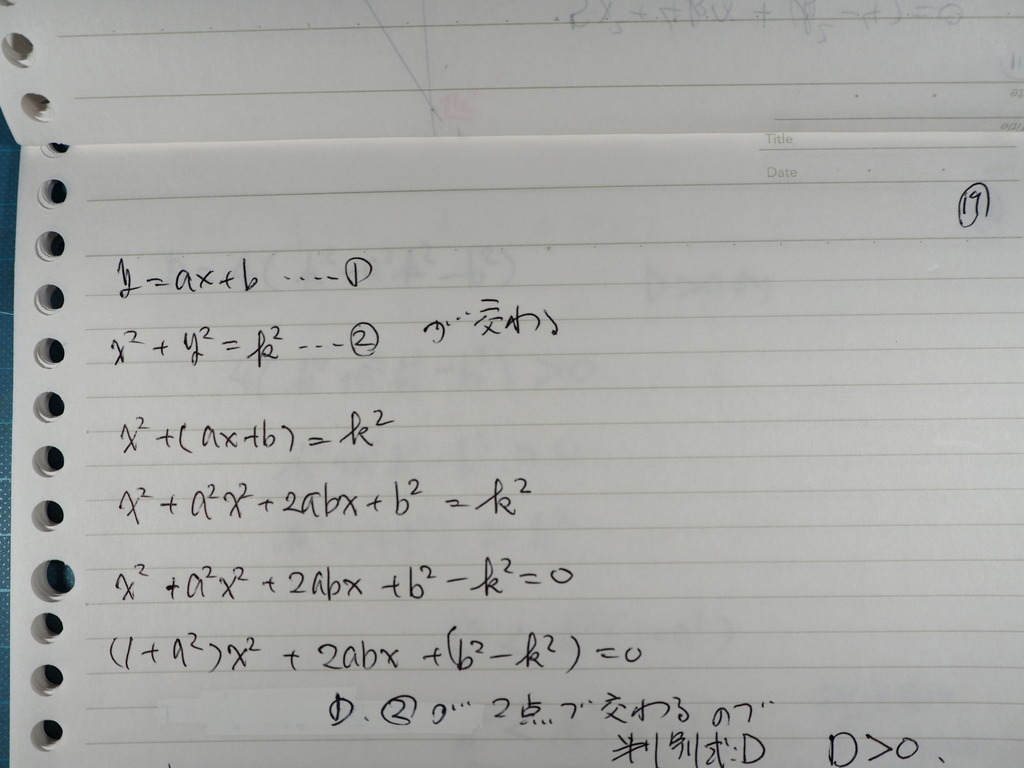 Title
Date
⑲
y = ax + b ‥‥‥ ①
x² + y² = k² ‥‥‥ ② が交わる
x² + (ax+b) = k²
x² + a²x² + 2abx + b² = k²
x² + a²x² + 2abx + b² - k² = 0
(1 + a²)x² + 2abx + (b² - k²) = 0
①、②が2点で交わるので
判別式:D D > 0、